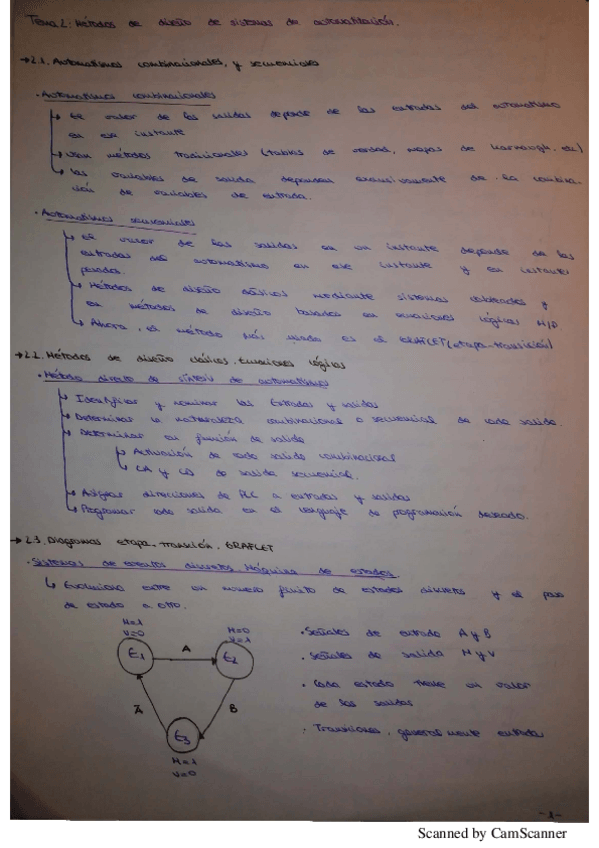 Tema 2: Métodos de diseño de sistemas de automatización.
→2.1. Automatismos combinacionales y secuenciales
· Automatismos combinacionales
↳ El valor de las salidas depende de las entradas del automatismo
en ese instante
↳ Usan métodos tradicionales (tablas de verdad, mapas de Karnaugh, etc)
↳ Las variables de salida dependen exclusivamente de la combina
ción de variables de entrada.
· Automatismos secuenciales
↳ El valor de las salidas en un instante depende de las
entradas del automatismo en ese instante y en instantes
pasados.
↳ Métodos de diseño clásicos mediante sistemas cableados y
en métodos de diseño basados en ecuaciones lógicas M/D
↳ Ahora, el método más usado es el GRAFCET (etapa-transición)
→2.2. Métodos de diseño clásicos. Funciones lógicas
· Método directo de síntesis de automatismos
↳ Identificar y nominar las Entradas y salidas
↳ Determinar la naturaleza combinacional o secuencial de cada salida.
↳ Determinar en función de salida
↳ Activación de cada salida combinacional
↳ CA y CD de salida secuencial.
↳ Asignar direcciones de PLC a entradas y salidas
↳ Programar cada salida en el lenguaje de programación deseado.
→2.3. Diagramas etapa-transición. GRAFCET
· Sistemas de eventos discretos. Máquina de estados.
↳ Evoluciona entre un número finito de estados discretos y el paso
de estado a otro.
M=1
V=0
M=0
V=1
E1
A
E2
Z
B
E3
M=1
V=0
· Señales de entrada A y B
· Señales de salida M y V
· Cada estado tiene un valor
de las salidas
· Transiciones, generalmente entrada
-1-
Scanned by CamScanner